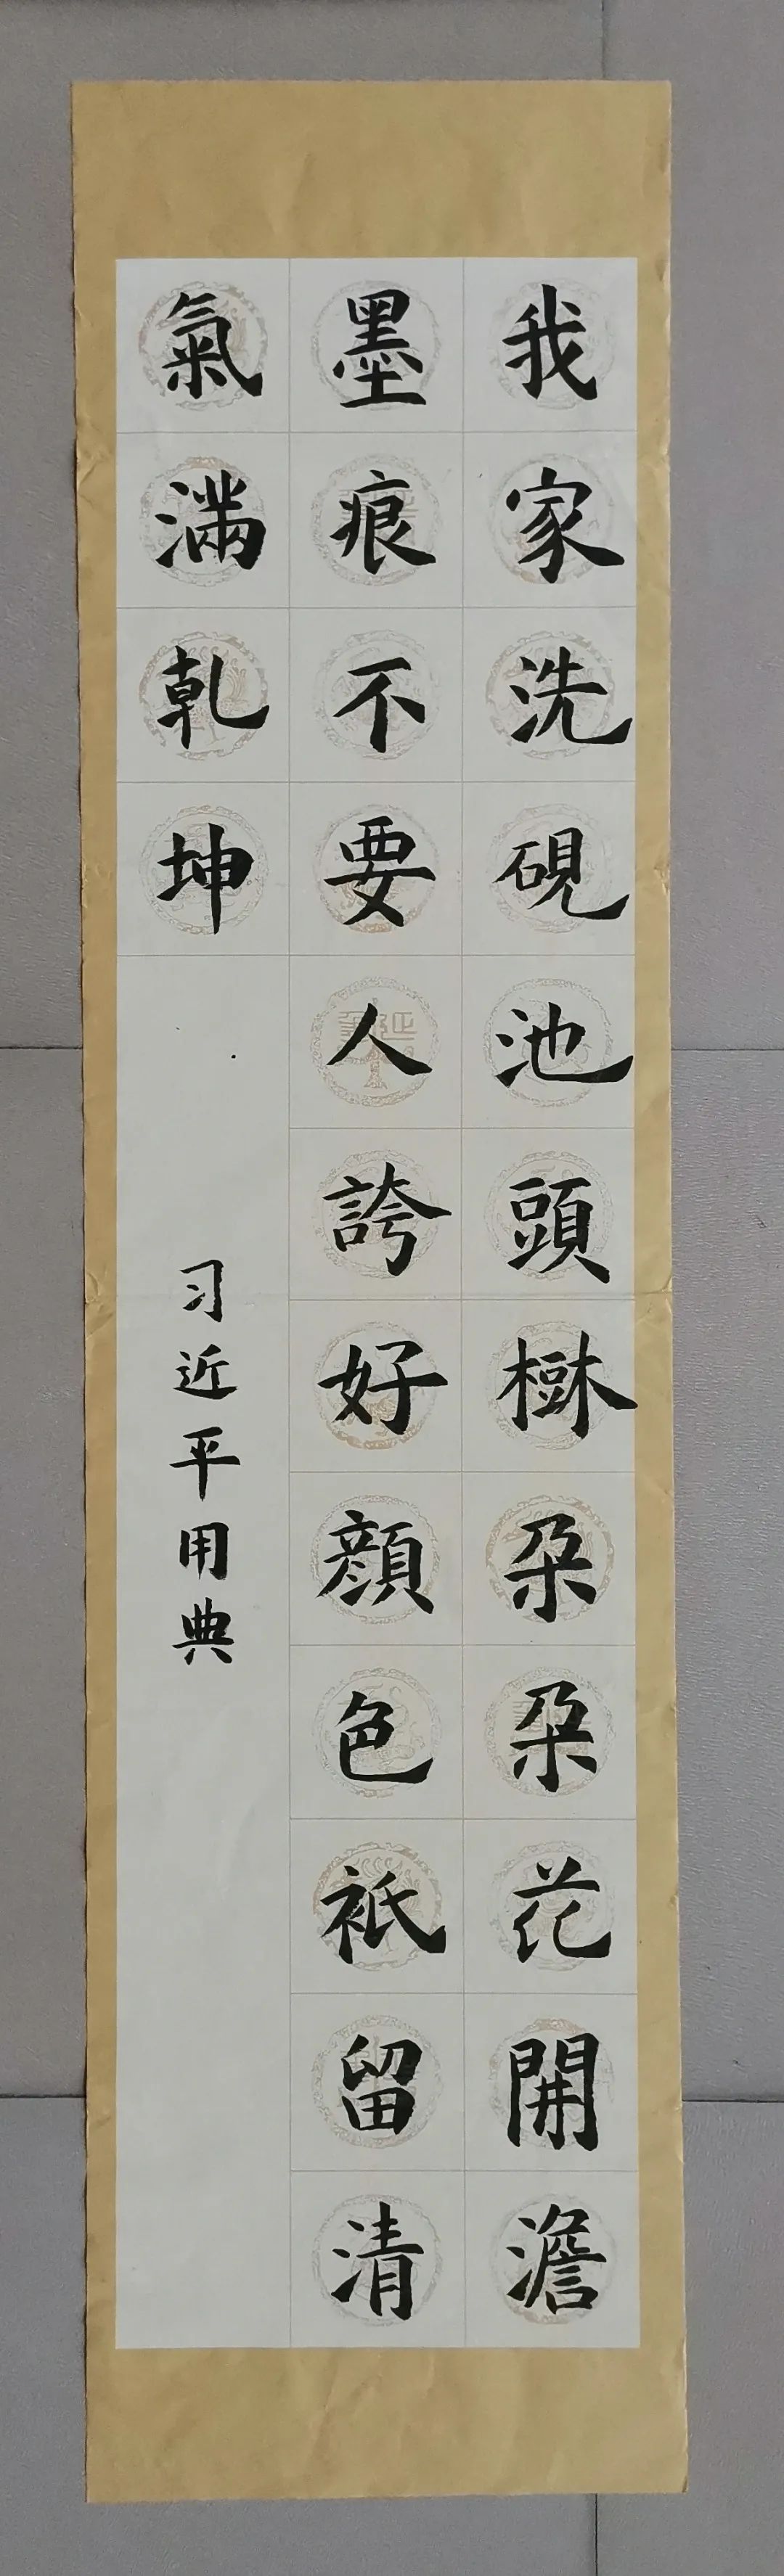 我家洗硯池頭樹朵朵花開澹
墨痕不要人誇好顔色衹留清
氣滿乾坤
习近平用典